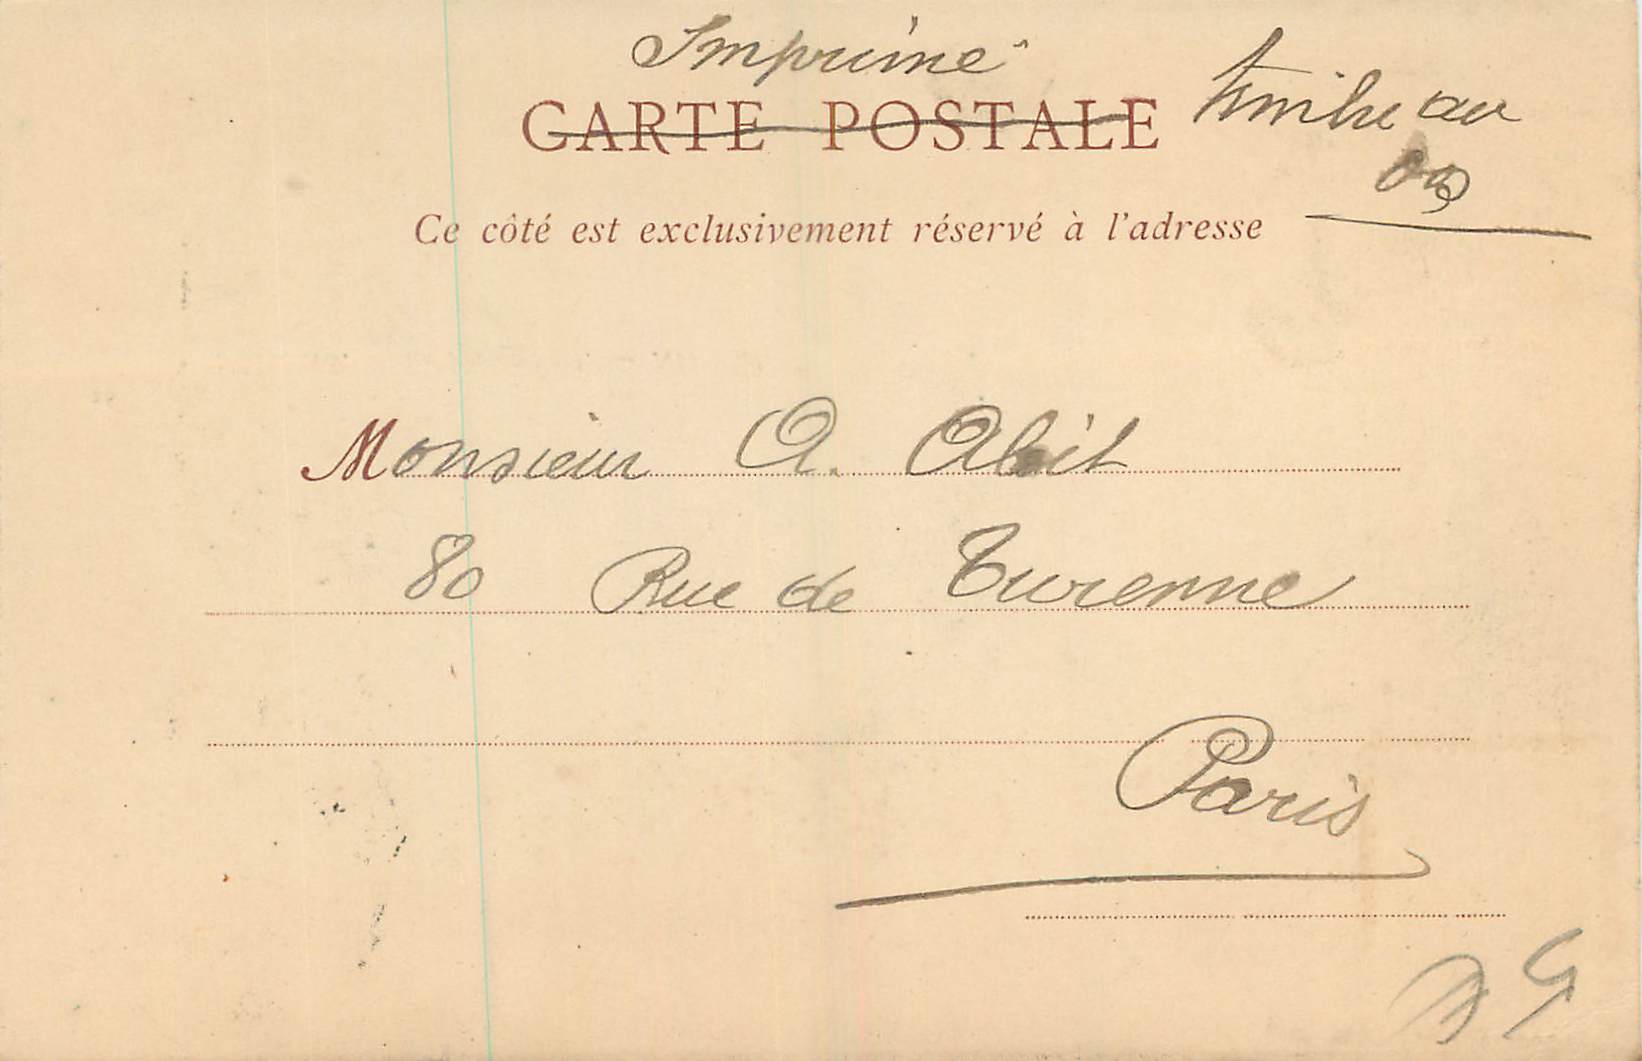 Imprimé
CARTE POSTALE
timbre au
dos
Ce côté est exclusivement réservé à l'adresse
Monsieur A. Abit
80 Rue de Turenne
Paris